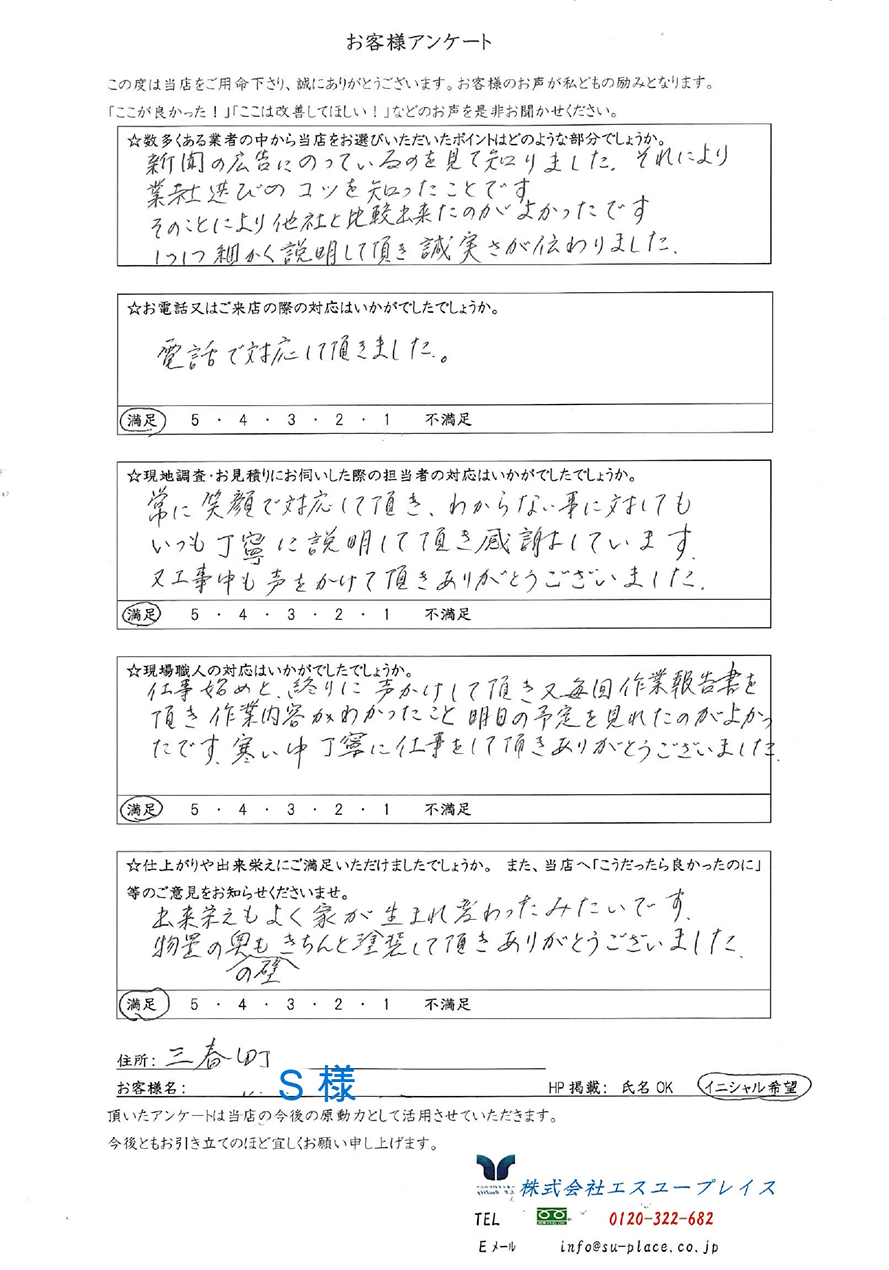 お客様アンケート
この度は当店をご用命下さり、誠にありがとうございます。お客様のお声が私どもの励みとなります。
「ここが良かった！」「ここは改善してほしい！」などのお声を是非お聞かせください。
☆数多くある業者の中から当店をお選びいただいたポイントはどのような部分でしょうか。
新聞の広告にのっているのを見て知りました。それにより
業社選びのコツを知ったことです
そのことにより他社と比較出来たのがよかったです
1つ1つ細かく説明して頂き誠実さが伝わりました.
☆お電話又はご来店の際の対応はいかがでしたでしょうか。
電話で対応して頂きました。
満足 5 ・ 4 ・ 3 ・ 2 ・ 1 不満足
☆現地調査・お見積りにお伺いした際の担当者の対応はいかがでしたでしょうか。
常に笑顔で対応して頂き、わからない事に対しても
いつも丁寧に説明して頂き感謝しています.
又工事中も声をかけて頂きありがとうございました.
満足 5 ・ 4 ・ 3 ・ 2 ・ 1 不満足
☆現場職人の対応はいかがでしたでしょうか。
仕事始めと、終りに声かけして頂き又毎回作業報告書を
頂き作業内容がわかったこと明日の予定を見れたのがよかっ
たです.寒い中丁寧に仕事をして頂きありがとうございました.
満足 5 ・ 4 ・ 3 ・ 2 ・ 1 不満足
☆仕上がりや出来栄えにご満足いただけましたでしょうか。 また、当店へ「こうだったら良かったのに」
等のご意見をお知らせくださいませ。
出来栄えもよく家が生まれ変わったみたいです.
物置の奥もきちんと塗装して頂きありがとうございました.
の壁
満足 5 ・ 4 ・ 3 ・ 2 ・ 1 不満足
住所: 三春町
お客様名: S 様 HP掲載: 氏名OK イニシャル希望
頂いたアンケートは当店の今後の原動力として活用させていただきます。
今後ともお引き立てのほど宜しくお願い申し上げます。
株式会社エスユープレイス
TEL 0120-322-682
Eメール info@su-place.co.jp